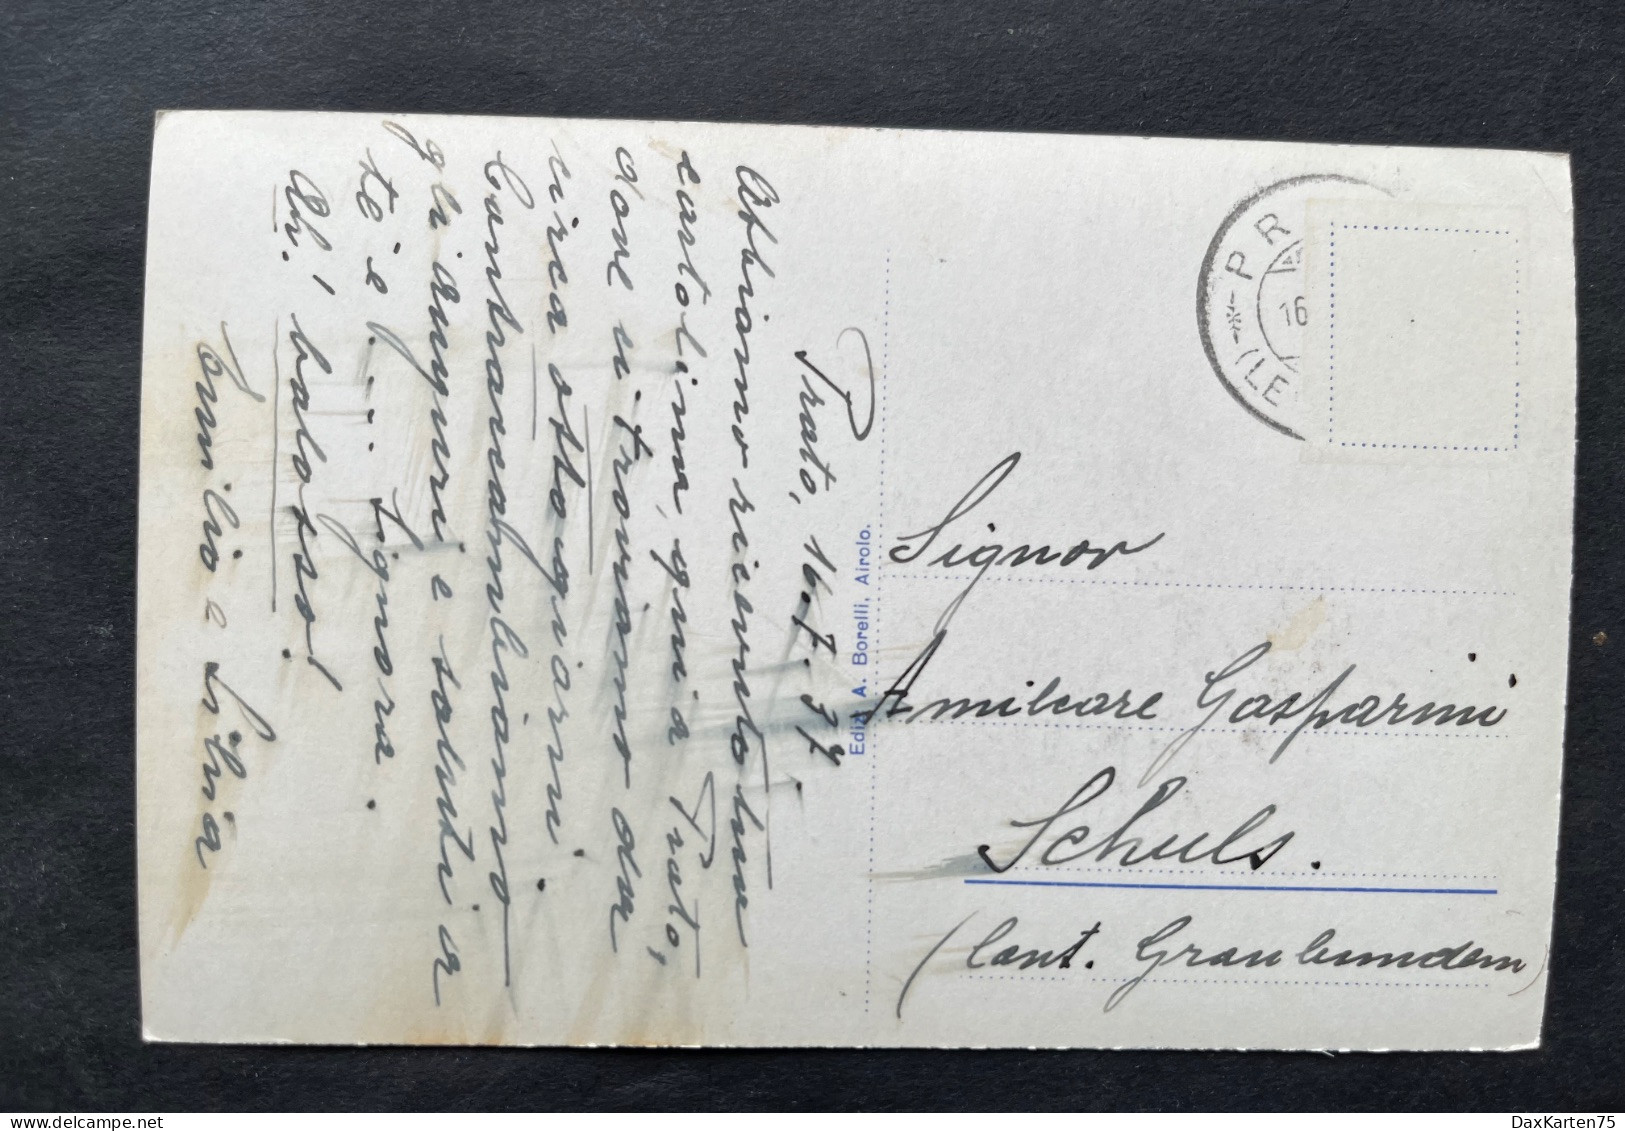 Prato, 16.7.37.
Abbiamo ricevuto tua
cartolina, qui a Prato,
dove ci troviamo da
circa otto giorni.
Contraccambiamo
gli auguri e saluti a
te e .... signora.
Ah! balosso!
Emilio e Silvia
Ediz. A. Borelli, Airolo.
PR
16
(LE
Signor
Amilcare Gasparini
Schuls.
(Cant. Graubundem)
DaxKarten75